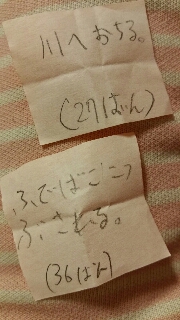 川へおちる。
(27ばん)
ふでばこつ
ぶされる。
(36ばん)